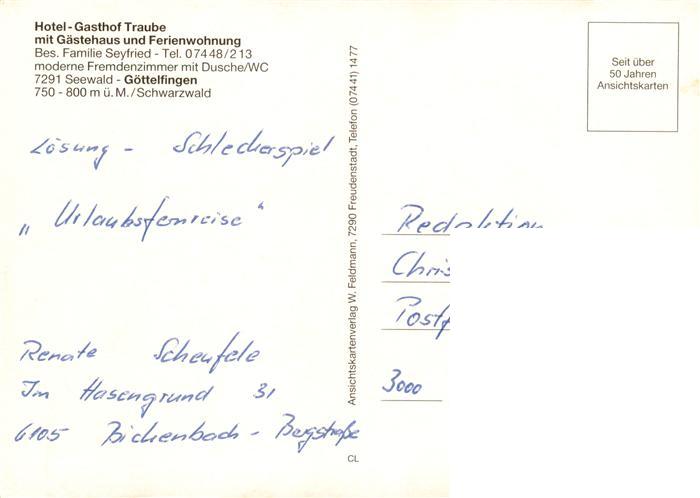 Hotel-Gasthof Traube
mit Gästehaus und Ferienwohnung
Bes. Familie Seyfried - Tel. 07448/213
moderne Fremdenzimmer mit Dusche/WC
7291 Seewald - Göttelfingen
750 - 800 m ü. M./Schwarzwald
Seit über
50 Jahren
Ansichtskarten
Lösung - Schleckerspiel
„Urlaubsfernreise“
Renate Scheufele
Im Hasengrund 31
6105 Bickenbach - Bergstraße
Ansichtskartenverlag W. Feldmann, 7290 Freudenstadt, Telefon (07441) 1477
CL
Redaktion
Chris
Postf
3000